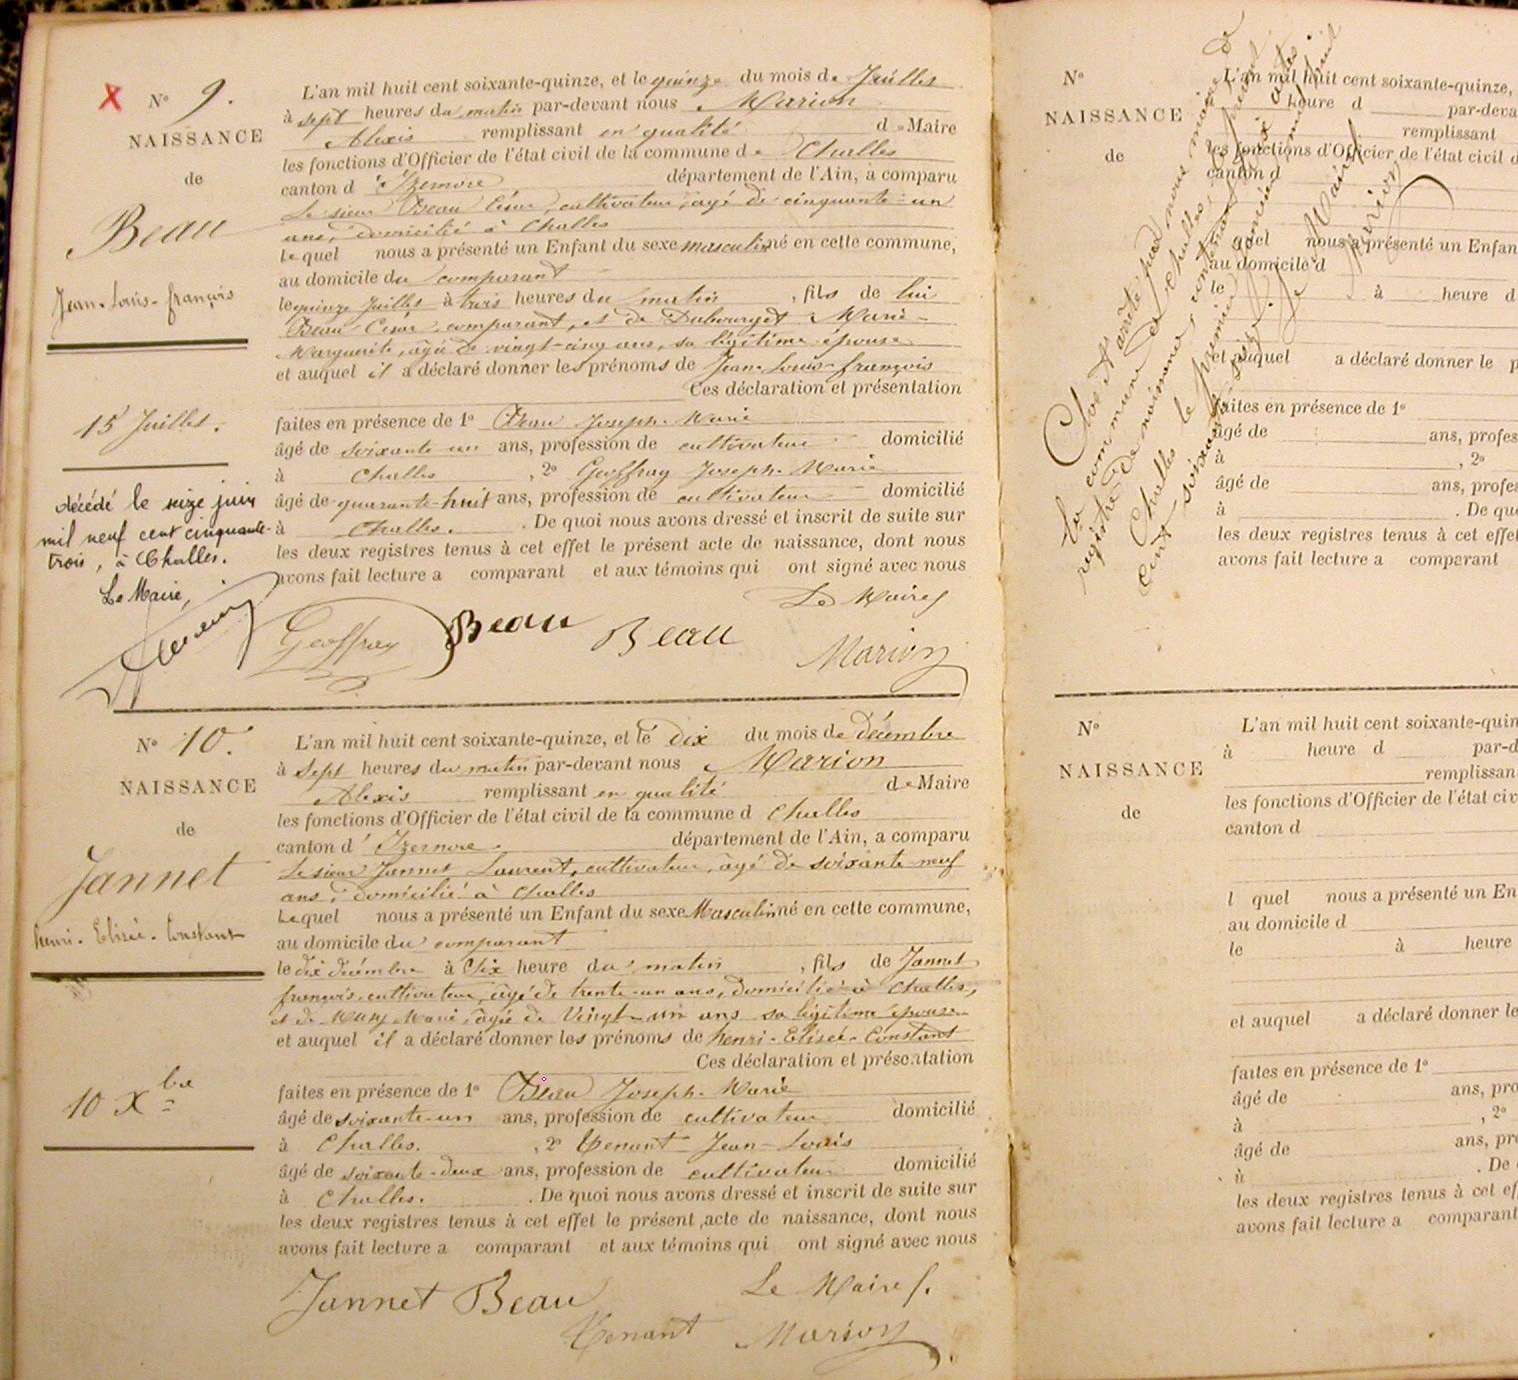 X
N° 9.
NAISSANCE
de
Beau
Jean-Louis-françois
15 Juillet.
décédé le seize juin
mil neuf cent cinquante-
trois, à Challes.
Le Maire,
L'an mil huit cent soixante-quinze, et le quinze du mois de Juillet
à sept heures du matin par-devant nous Marion
Alexis remplissant en qualité de Maire
les fonctions d'Officier de l'état civil de la commune de Challes
canton d'Izernore département de l'Ain, a comparu
Le sieur Beau César, cultivateur, agé de cinquante-un
ans, domicilié à Challes
Lequel nous a présenté un Enfant du sexe masculin né en cette commune,
au domicile du comparant
le quinze Juillet à trois heures du matin, fils de lui
Beau César comparant, et de Dubourget Marie-
Marguerite, agée de vingt-cinq ans, sa légitime épouse
et auquel il a déclaré donner les prénoms de Jean-Louis-françois
Ces déclaration et présentation
faites en présence de 1° Beau Joseph-Marie
âgé de soixante un ans, profession de cultivateur domicilié
à Challes, 2° Geoffray Joseph-Marie
âgé de quarante-huit ans, profession de cultivateur domicilié
à Challes. . De quoi nous avons dressé et inscrit de suite sur
les deux registres tenus à cet effet le présent acte de naissance, dont nous
avons fait lecture a comparant et aux témoins qui ont signé avec nous
Le Maire
Geoffray Beau Beau Marion
N° 10.
NAISSANCE
de
Jannet
henri-Elisée-Constant
10 Xbre
L'an mil huit cent soixante-quinze, et le dix du mois de décembre
à sept heures du matin par-devant nous Marion
Alexis remplissant en qualité de Maire
les fonctions d'Officier de l'état civil de la commune d Challes
canton d'Izernore département de l'Ain, a comparu
Le sieur Jannet Laurent, cultivateur, âgé de soixante-neuf
ans, domicilié à Challes
Lequel nous a présenté un Enfant du sexe Masculin né en cette commune,
au domicile du comparant
le dix décembre à Six heure du matin, fils de Jannet
françois cultivateur, âgé de trente-un ans, domicilié à Challes,
et de Marie, âgée de Vingt-un ans sa légitime épouse
et auquel il a déclaré donner les prénoms de henri-Elisée-Constant
Ces déclaration et présentation
faites en présence de 1° Beau Joseph-Marie
âgé de soixante-un ans, profession de cultivateur domicilié
à Challes. , 2° Tenant Jean-Louis
âgé de soixante-deux ans, profession de cultivateur domicilié
à Challes. . De quoi nous avons dressé et inscrit de suite sur
les deux registres tenus à cet effet le présent acte de naissance, dont nous
avons fait lecture a comparant et aux témoins qui ont signé avec nous
Le Maire
Jannet Beau
Tenant Marion
N°
NAISSANCE
de
L'an mil huit cent soixante-quinze,
heure d par-deva
remplissant
les fonctions d'Officier de l'état civil d
canton d
quel nous a présenté un Enfan
au domicile d
le à heure d
et auquel a déclaré donner le p
faites en présence de 1°
âgé de ans, profes
à , 2°
âgé de ans, profes
à . De quo
les deux registres tenus à cet effet
avons fait lecture a comparant
Clos et arrêté par nous maire de
la commune de Challes, le présent
registre de naissances contenant dix actes
Challes le premier janvier mil huit
cent soixante seize.
Le Maire
Marion
N°
NAISSANCE
de
L'an mil huit cent soixante-quin
à heure d par-d
remplissan
les fonctions d'Officier de l'état civ
canton d
l quel nous a présenté un En
au domicile d
le à heure
et auquel a déclaré donner le
faites en présence de 1°
âgé de ans, pro
à , 2°
âgé de ans, pro
à . De
les deux registres tenus à cet ef
avons fait lecture a comparant